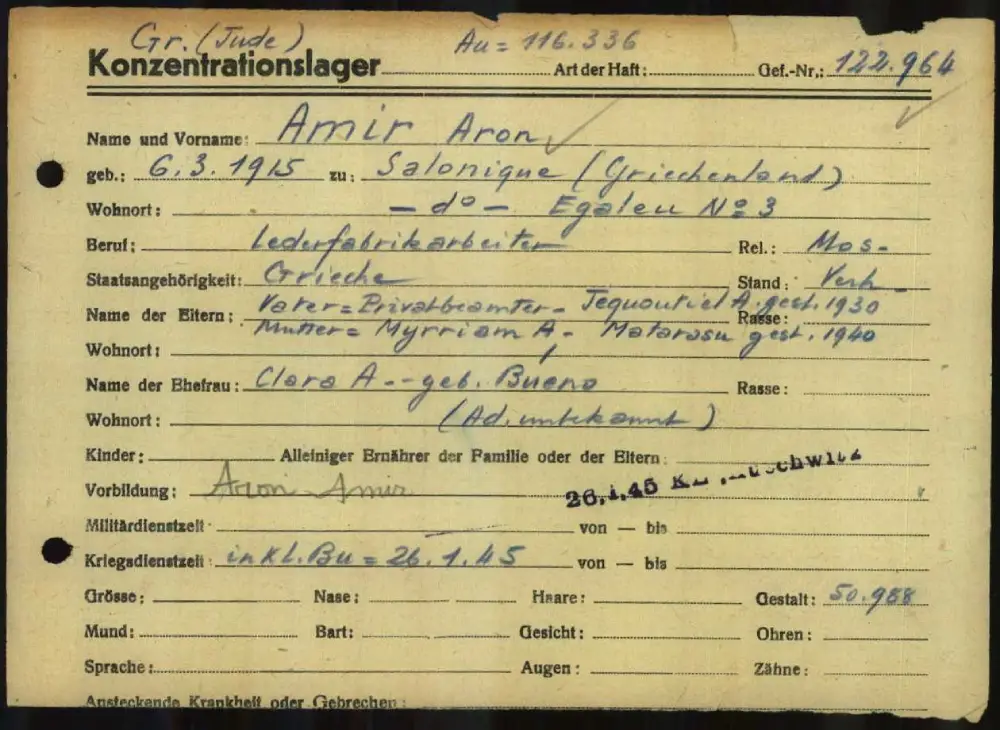 Gr. (Jude) Au = 116.336
Konzentrationslager Art der Haft: Gef.-Nr.: 122.964
Name und Vorname: Amir Aron
geb.: 6.3.1915 zu: Salonique (Griechenland)
Wohnort: - do - Egaleu No 3
Beruf: Lederfabrikarbeiter Rel.: Mos-
Staatsangehörigkeit: Grieche Stand: Verh-
Name der Eltern: Vater = Privatbeamter - Jequoutiel A. gest. 1930 Rasse:
Mutter = Myrriam A - Matarasu gest. 1940
Wohnort:
Name der Ehefrau: Clara A - - geb. Bueno Rasse:
Wohnort: (Ad. unbekannt)
Kinder: Alleiniger Ernährer der Familie oder der Eltern:
Vorbildung: Aron Amir 26.1.45 KL Auschwitz
Militärdienstzeit: von — bis
Kriegsdienstzeit: inkl. Bu = 26.1.45 von — bis
Grösse: Nase: Haare: Gestalt: 50.988
Mund: Bart: Gesicht: Ohren:
Sprache: Augen: Zähne:
Ansteckende Krankheit oder Gebrechen: